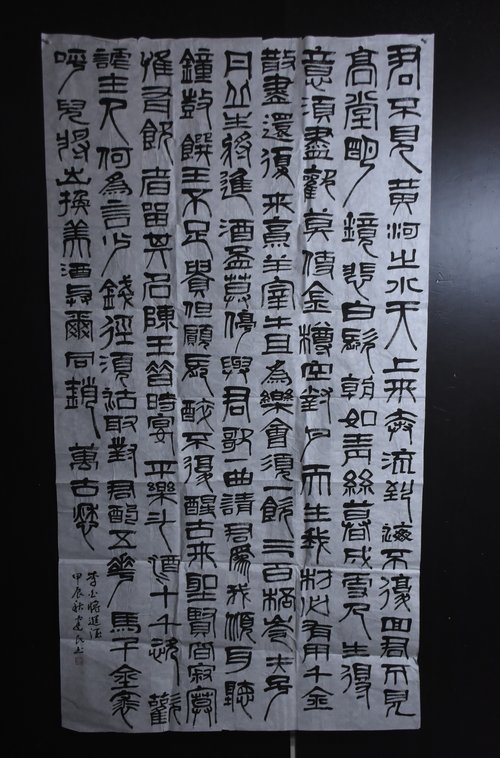 君不見黃河之水天上來奔流到海不復回君不見
高堂明鏡悲白髮朝如青絲暮成雪人生得
意須盡歡莫使金樽空對月天生我材必有用千金
散盡還復來烹羊宰牛且為樂會須一飲三百桮岑夫子
丹丘生將進酒盃莫停與君歌曲請君爲我傾耳聽
鐘鼓饌玉不足貴但願長醉不復醒古來聖賢皆寂寞
惟有飲者留其名陳王昔時宴平樂斗酒十千恣歡
謔主人何為言少錢徑須沽取對君酌五花馬千金裘
呼兒將出換美酒與爾同銷萬古愁
李白將進酒
甲辰秋